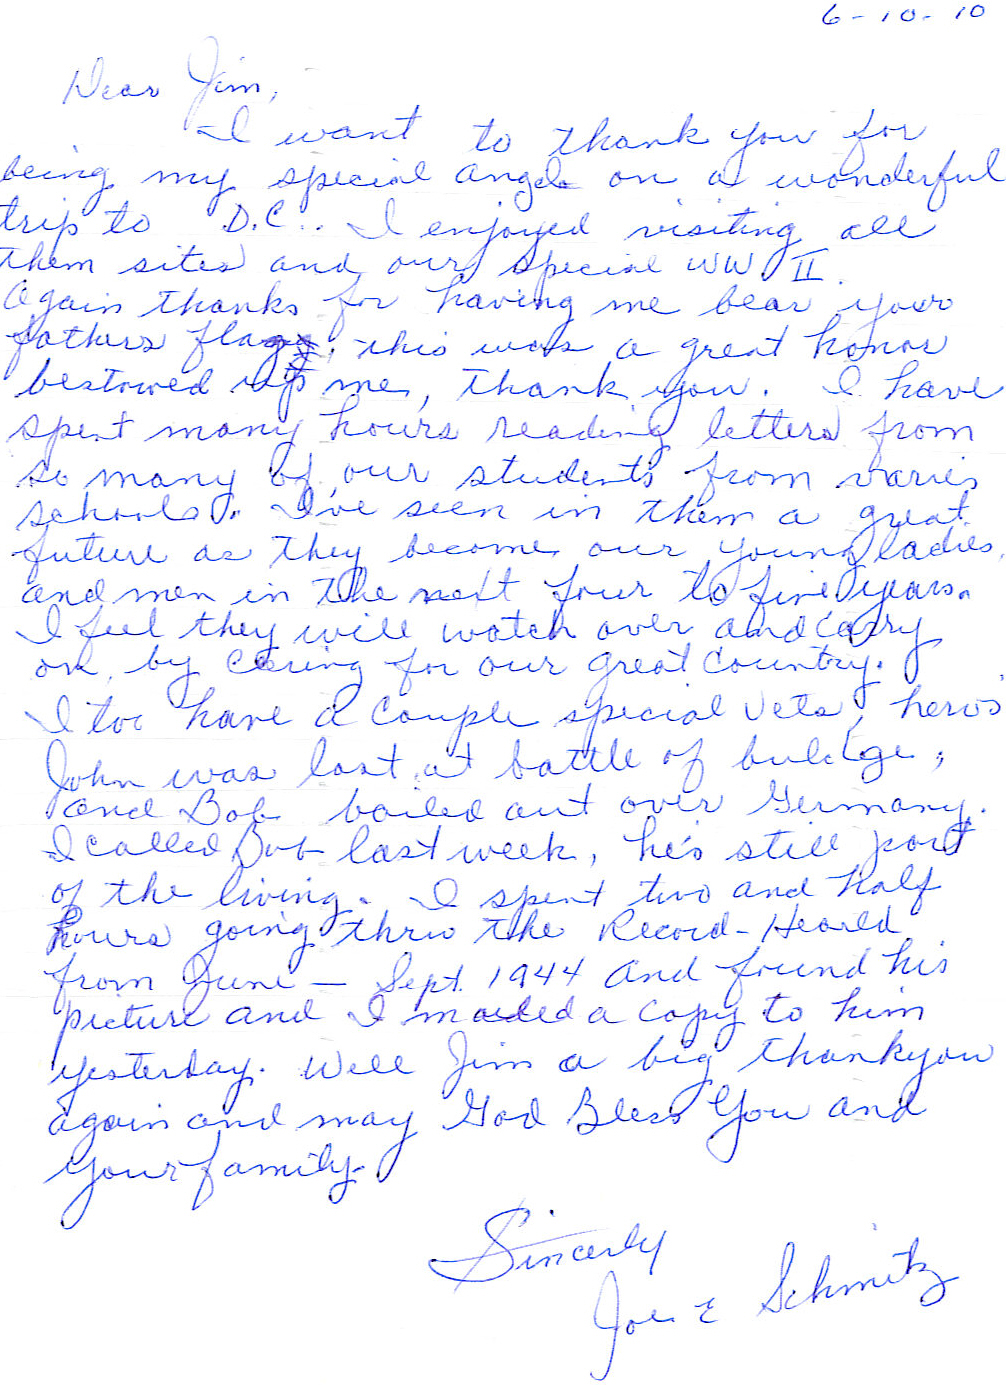 6-10-10
Dear Jim,
I want to thank you for
being my special angel on a wonderful
trip to D.C.. I enjoyed visiting all
them sites and our special WW II.
Again thanks for having me bear your
fathers flag, this was a great honor
bestowed me, thank you. I have
spent many hours reading letters from
so many of our students from varies
schools. I've seen in them a great
future as they become our young ladies,
and men in the next four to five years.
I feel they will watch over and carry
on, by caring for our great country.
I too have a couple special vets, hero's
John was lost at battle of buldge,
and Bob bailed out over Germany.
I called Bob last week, he's still part
of the living. I spent two and half
hours going thru the Record-Hearld
from June - Sept. 1944 and found his
picture and I mailed a copy to him
yesterday. Well Jim a big thankyou
again and may God Bless You and
your family.
Sincerly
Joe E Schmitz